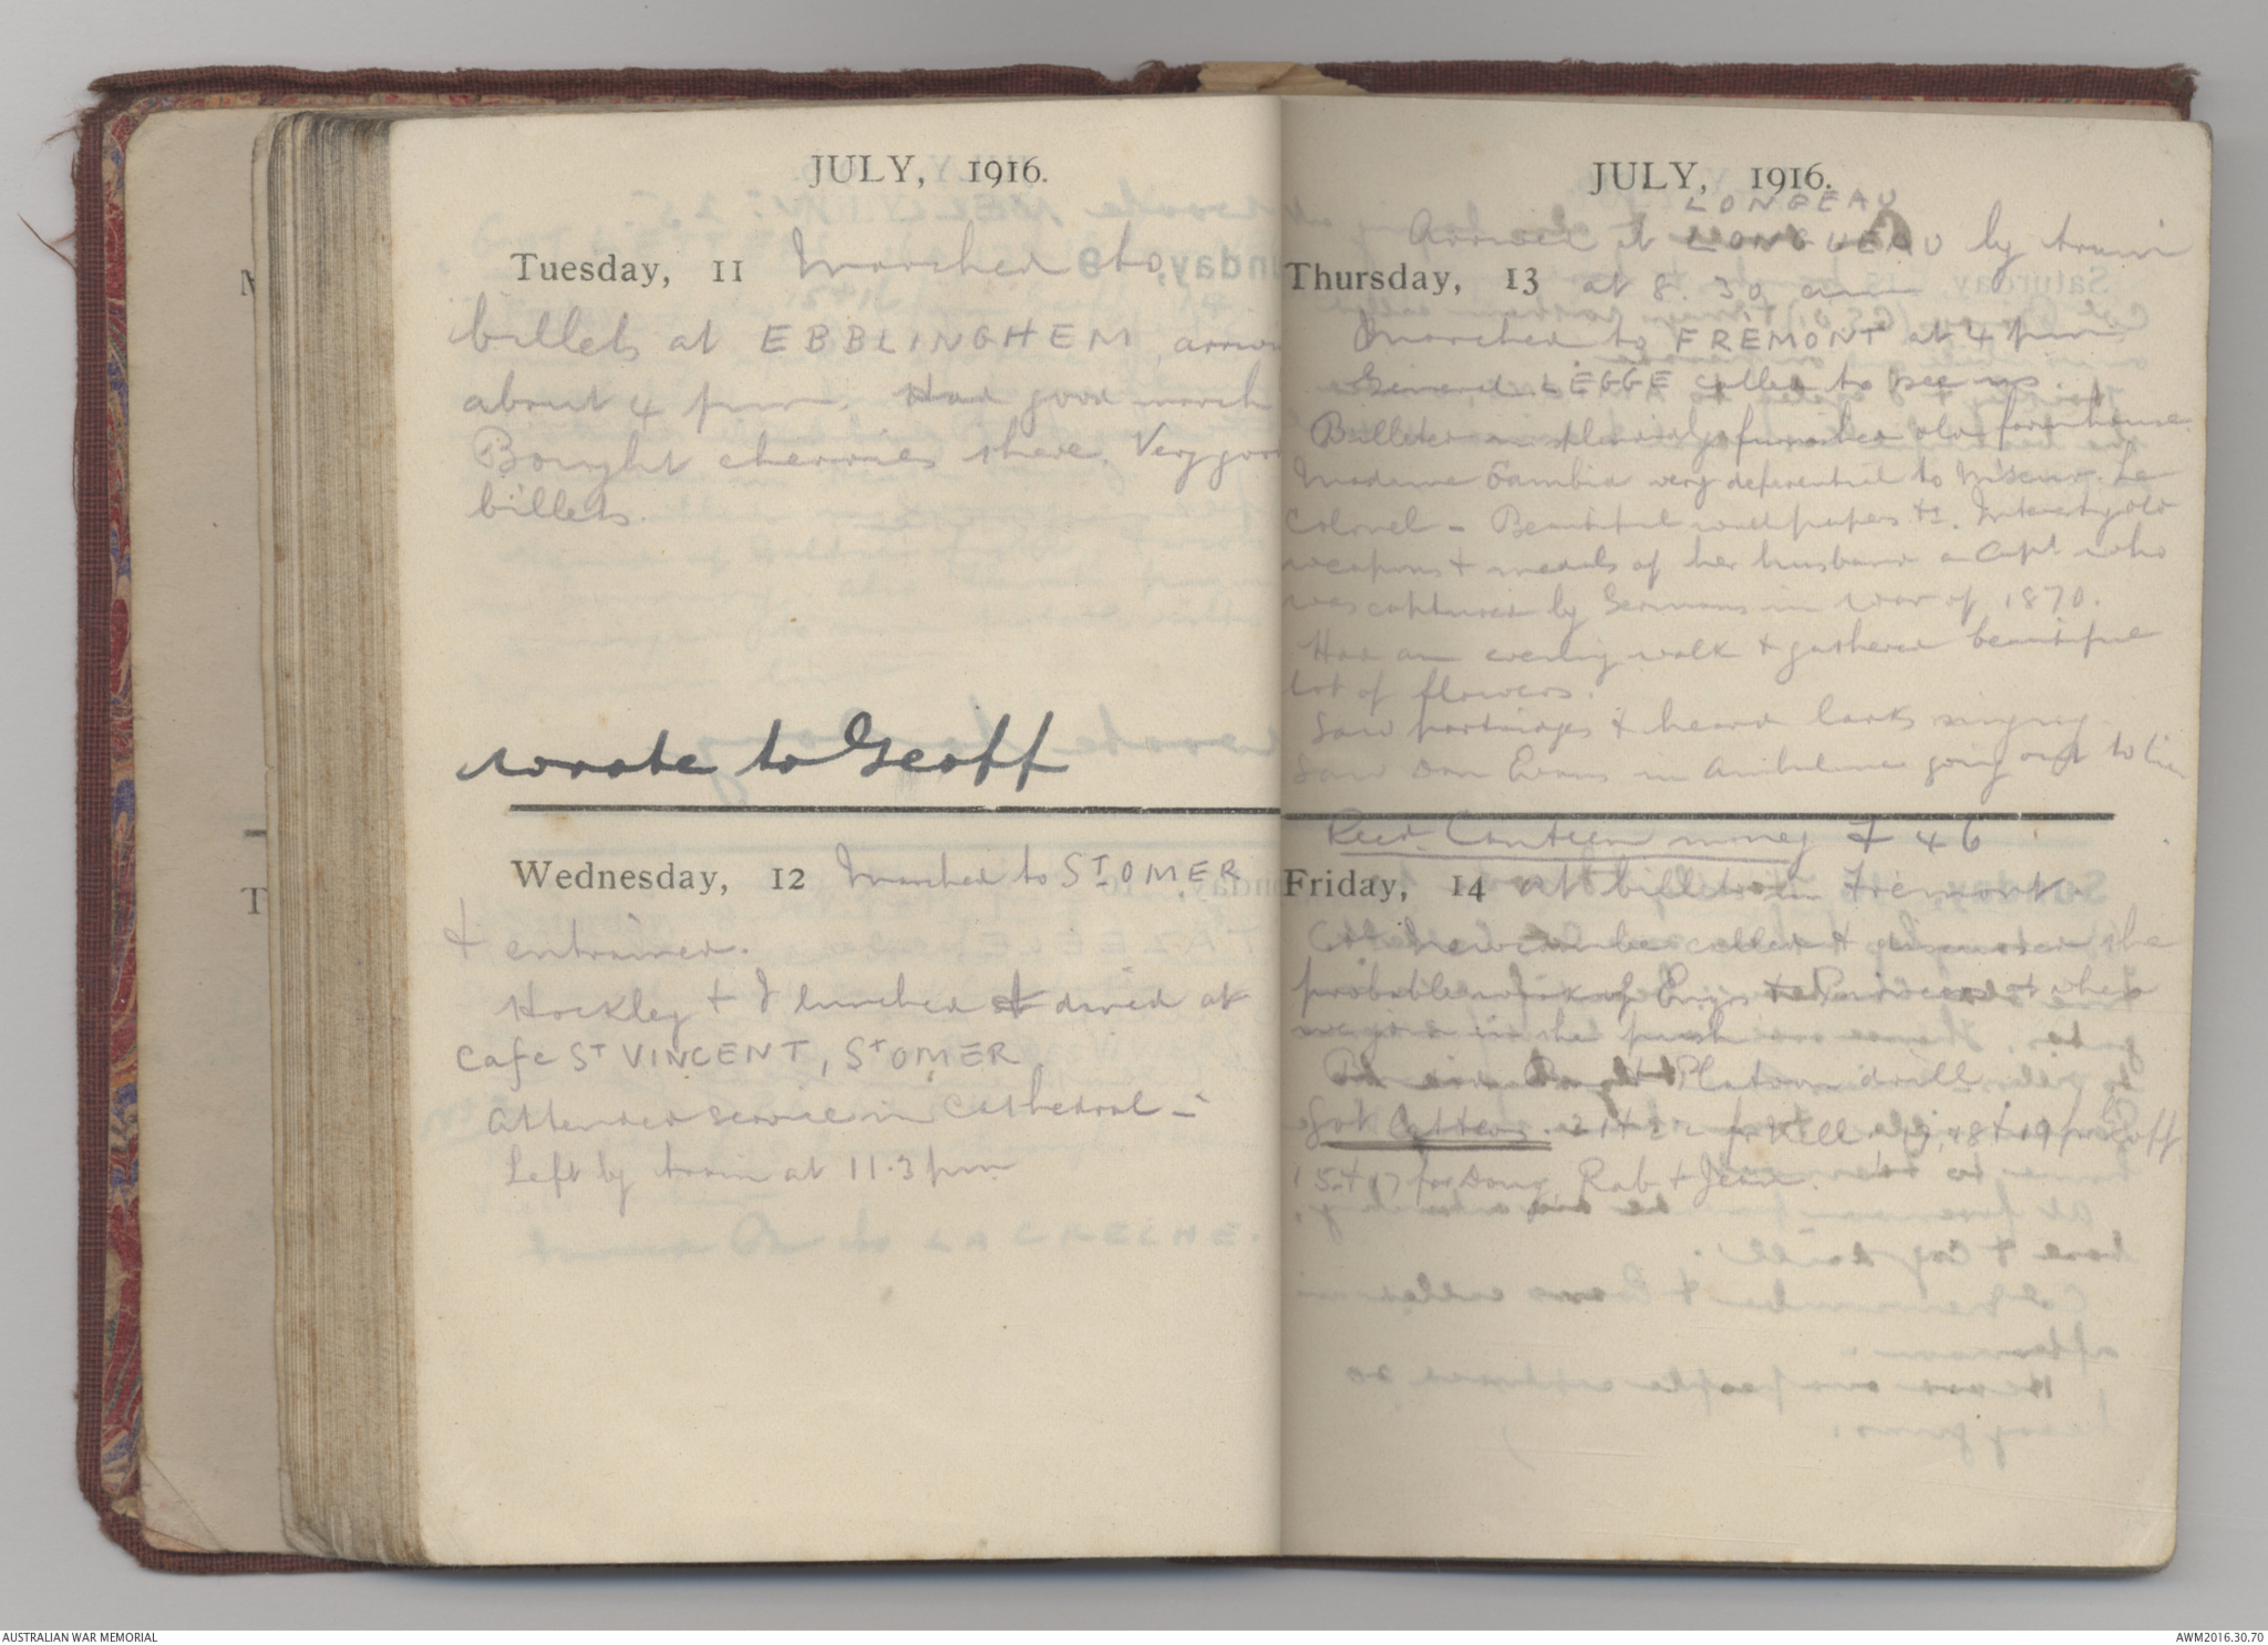 JULY, 1916.
Tuesday, 11 Marched to
billets at EBBLINGHEM, arriv
about 4 pm. Had good march
Bought cherries there. Very good
billets.
wrote to Geoff
Wednesday, 12 Marched to ST OMER
& entrained.
Hockley & I lunched & dined at
Cafe ST VINCENT, ST OMER
Attended service in Cathedral -
Left by train at 11.3 pm
JULY, 1916.
LONGEAU
Arrived at LONGUEAU by train
Thursday, 13 at 8.30 am
Marched to FREMONT at 4 pm
General LEGGE called to see us.
Billeted in splendidly furnished old farmhouse.
Madame Gambia very deferential to M'sieur Le
Colonel - Beautiful wallpapers &c. Interestg old
weapons & medals of her husband a Capt who
was captured by Germans in war of 1870.
Had an evening walk & gathered beautiful
lot of flowers.
Saw partridges & heard larks singing
Saw Evans in Ambulance going out to
Recd. Canteen money £ 46
Friday, 14 At billets in Fremont.
Col Newcombe called & discussed the
probable work of Engrs & Pioneers when
we join in the push
Platoon drill
Got letters. 21 & 22 fr Nell 17, 18 & 19 fr Geoff
15 & 17 for Doug, Rob & Jean.
AUSTRALIAN WAR MEMORIAL
AWM2016.30.70